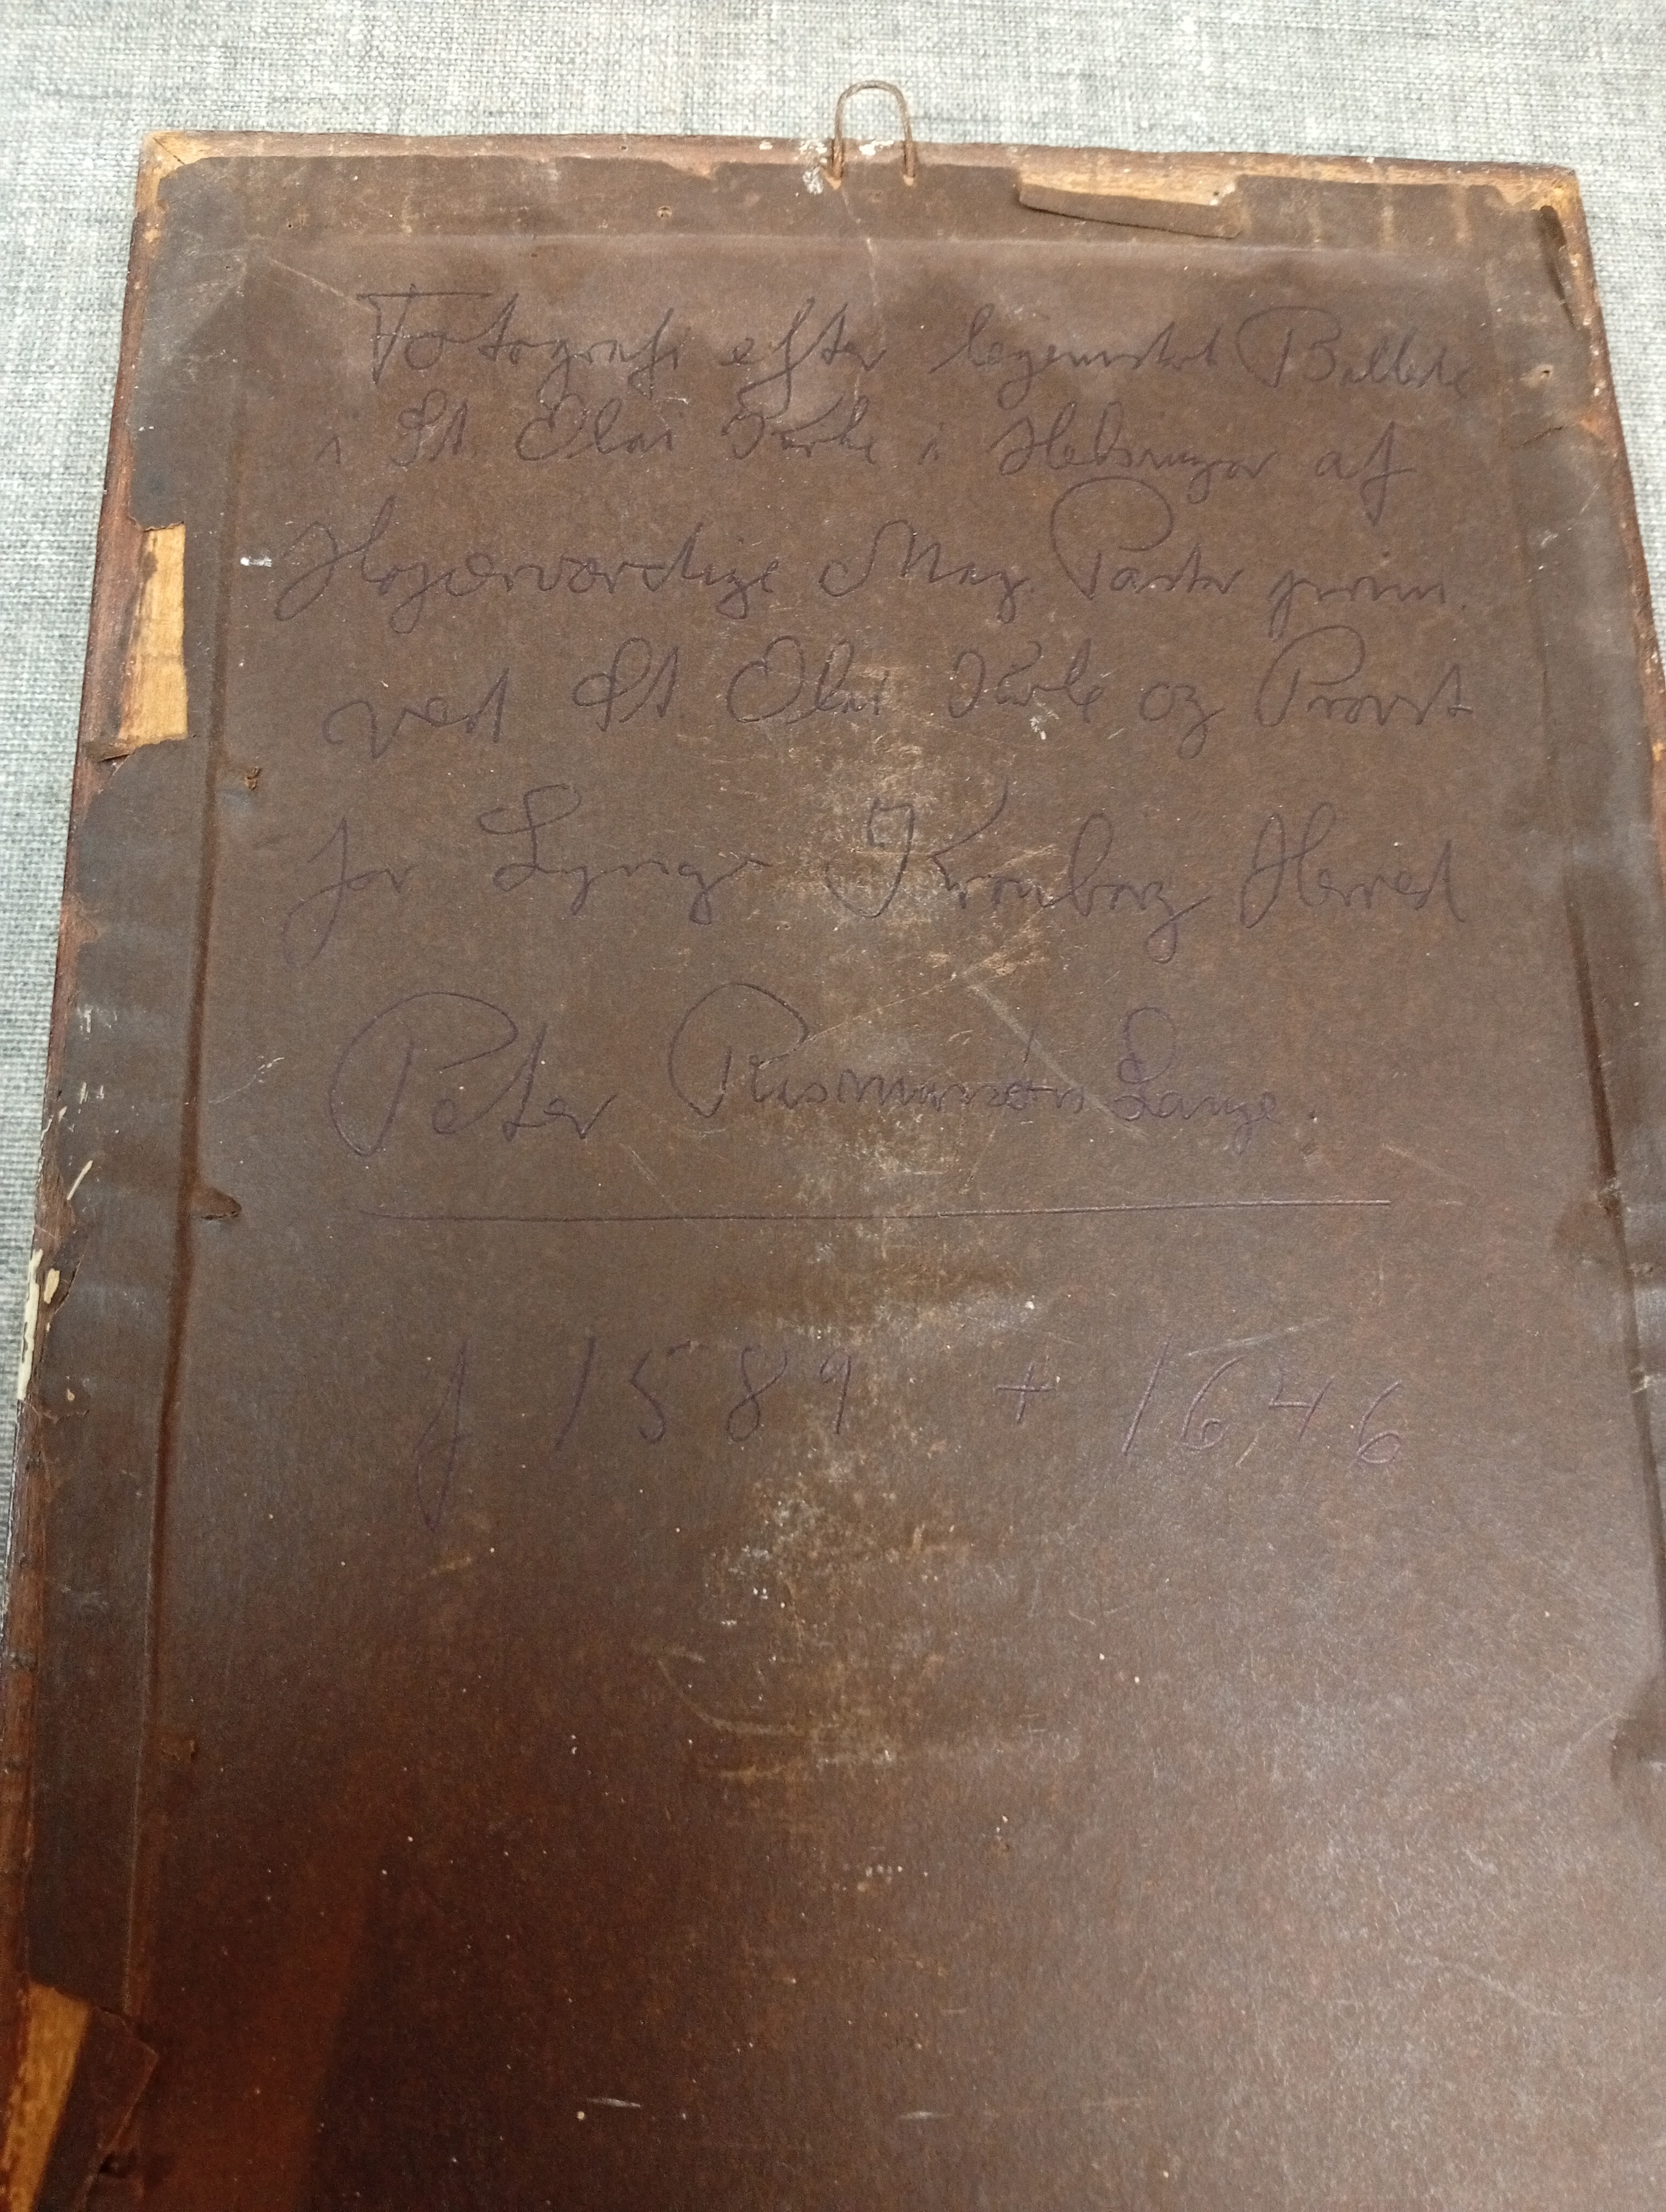 Fotografi efter legemstort Billede
i St. Olai Kirke i Helsingør af
Højærværdige Mag. Pastor prim.
ved St Olai Kirke og Provst
for Lynge Kronborg Herred
Peter Rasmussøn Lange.
f 1589 + 1646